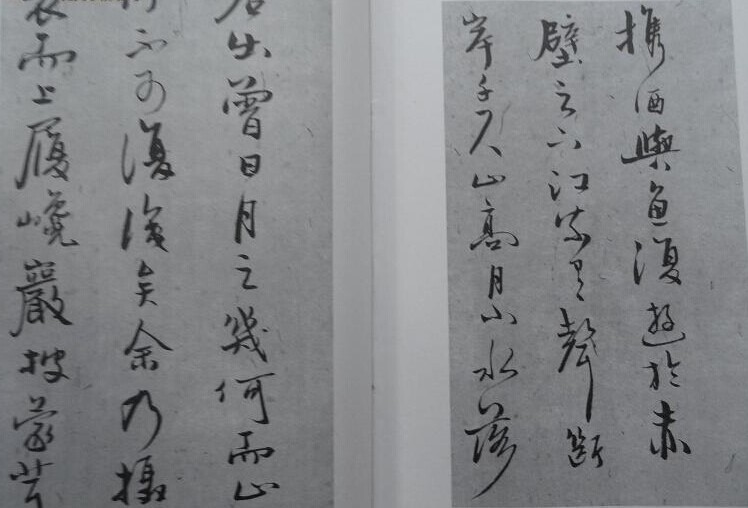 攜酒與魚復遊於赤
壁之下江流有聲斷
岸千尺山高月小水落
石出曾日月之幾何而山
不可復識矣余乃攝
衣而上履巉巖披蒙茸